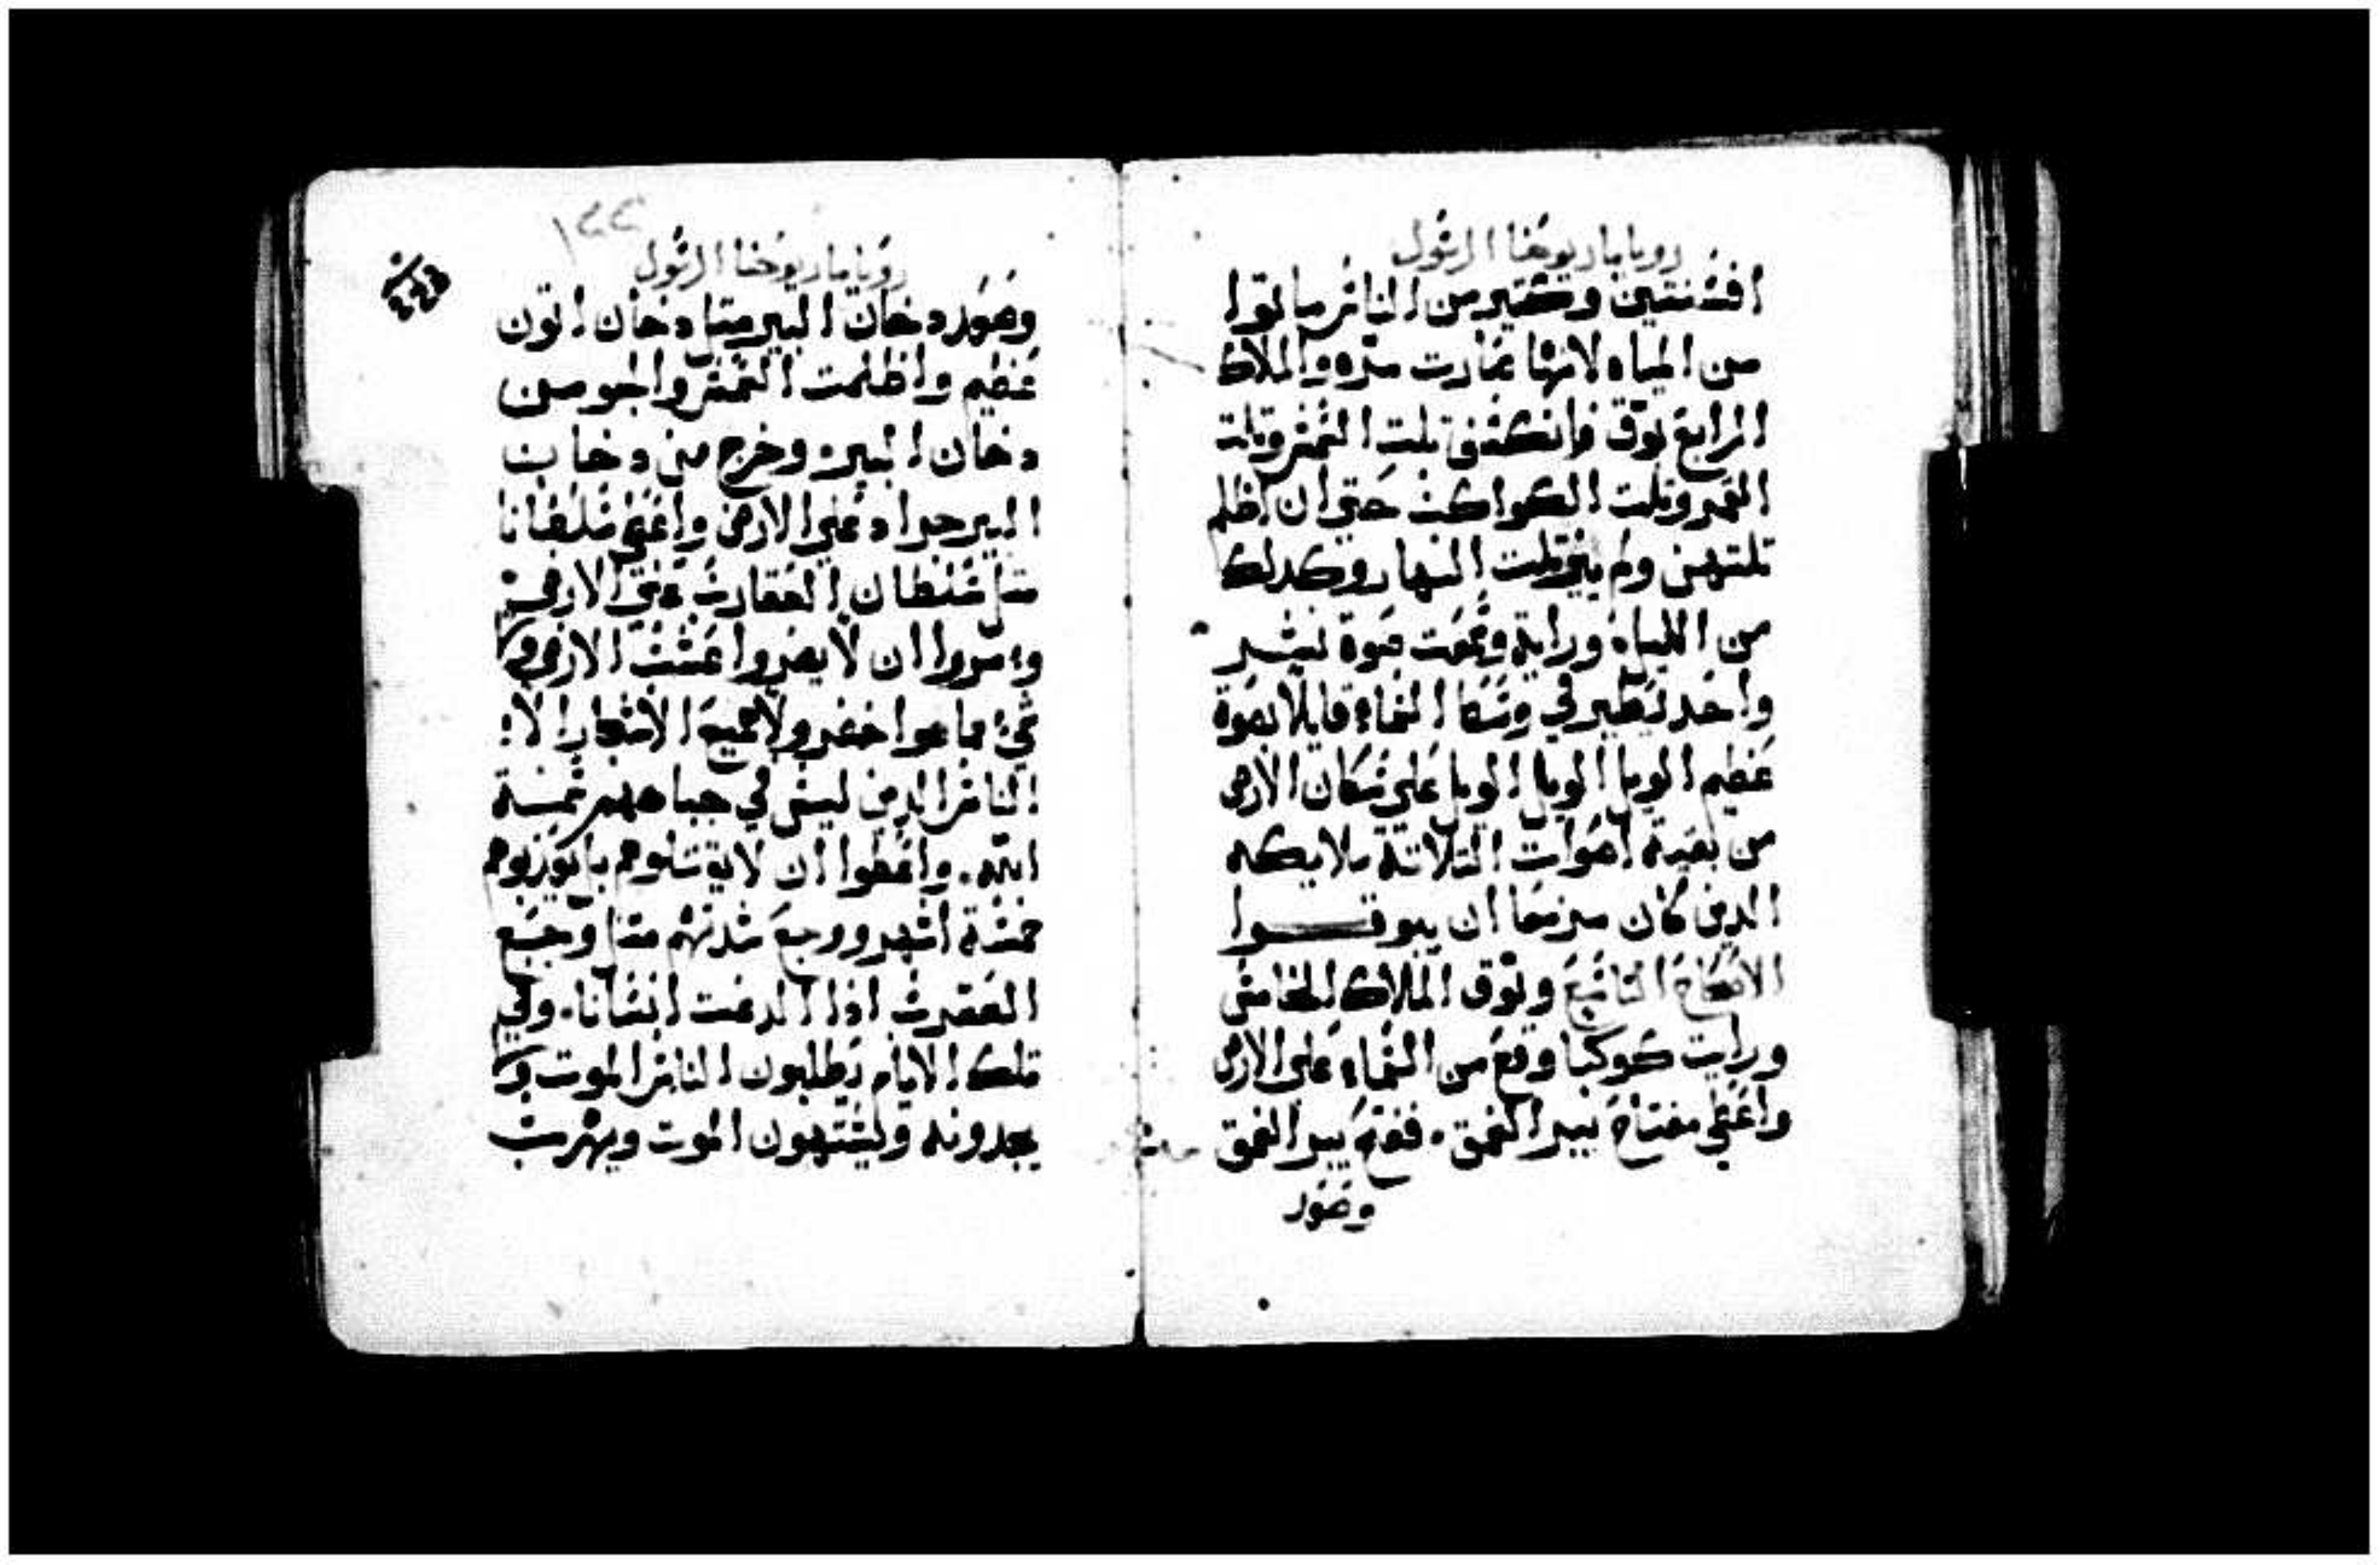 رويا مار يوحنا الرسول
افسنتين وكتير من الناس ماتوا
من المياه لانها صارت مره والملاك
الرابع بوق فانكسف تلت الشمس وتلت
القمر وتلت الكواكب حتي ان اظلم
تلتهن ولم يبن تلت النهار وكدلك
من الليل ورايت وسمعت صوت نسر
واحد يطير في وسط السماء قايلا بصوة
عظيم الويل الويل الويل علي سكان الارض
من بقية اصوات التلاتة ملايكه
الدين كان مزمعا ان يبوقوا
الاصحاح التاسع وبوق الملاك الخامس
ورايت كوكبا وقع من السماء علي الارض
واعطي مفتاح بير العمق. ففتح بير العمق
وصعد
١٤٤
رويا مار يوحنا الرسول
وصعد دخان البير متل دخان اتون
عظيم واظلمت الشمس والجو من
دخان البير وخرج من دخان
البير جراد علي الارض واعطي سلطانا
متل سلطان العقارب علي الارض
وامروا ان لا يضروا عشب الارض ولا
شي مما هوا خضر ولا جميع الاشجار الا
الناس الدين ليس في جباههم سمة
الله. واعطوا ان لا يقتلوهم بل يوزبوهم
خمسة اشهر ووجع شدتهم متل وجع
العقرب اذا الدغت انسانا. وفي
تلك الايام يطلبون الناس الموت ولا
يجدونه ويشتهون الموت ويهرب